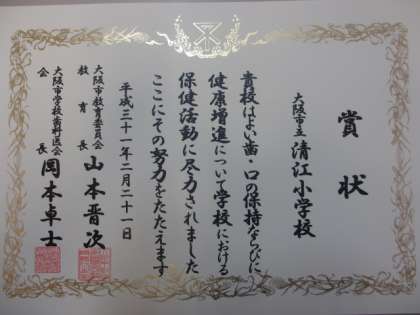 賞状
大阪市立 清江小学校
貴校はよい歯・口の保持ならびに
健康増進について学校における
保健活動に尽力されました
ここにその努力をたたえます
平成三十一年二月二十一日
大阪市教育委員会
教育長 山本晋次
大阪市学校歯科医会
会長 岡本卓士